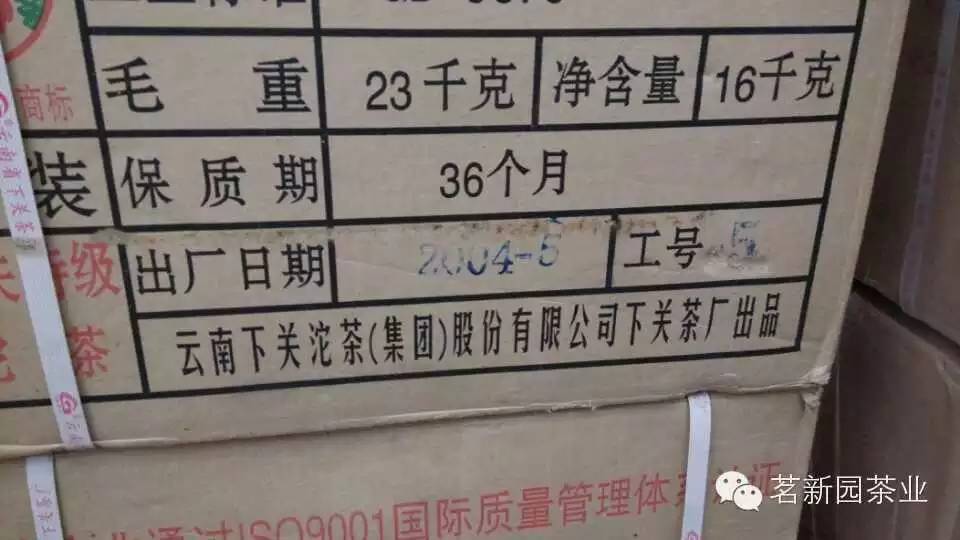 商标
毛 重 23千克 净含量 16千克
装 保质期 36个月
特级 出厂日期 2004-5 工号 5
茶 云南下关沱茶(集团)股份有限公司下关茶厂出品
云南省下关茶
通过ISO9001国际质量管理体系认证
茗新园茶业